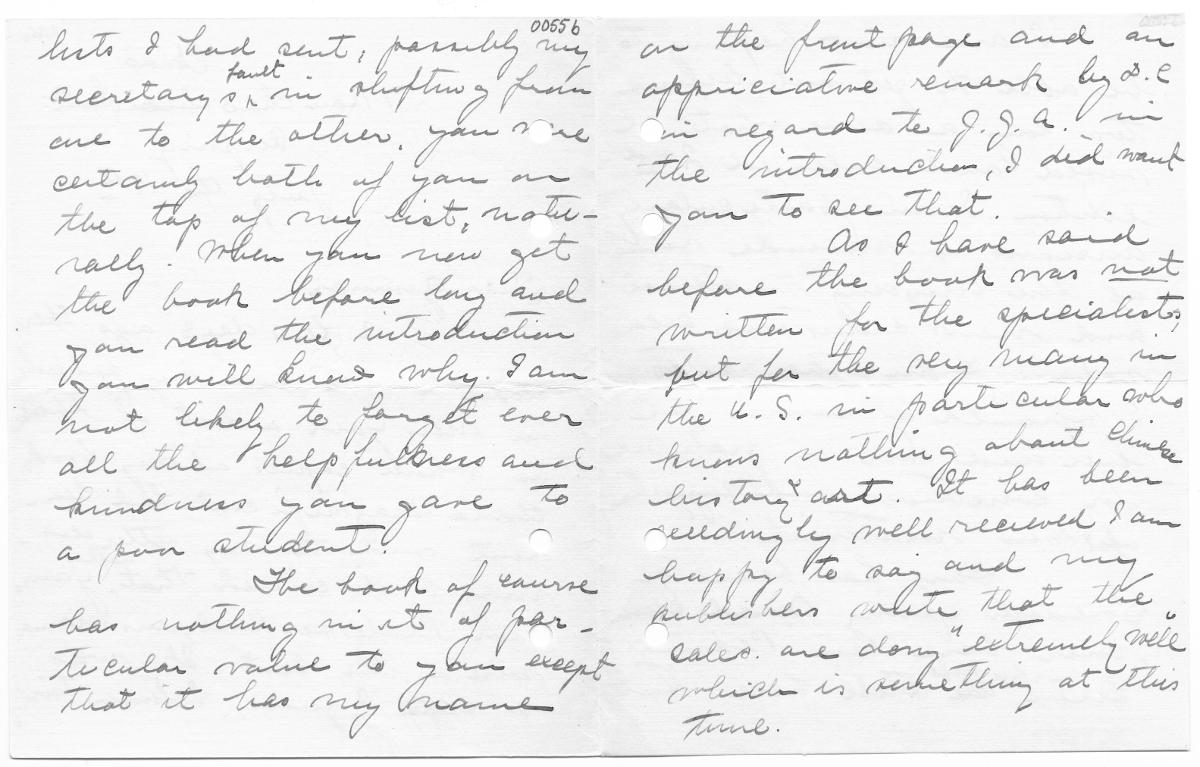 00556
lists I had sent, possibly my
secretarys fault in shifting from
one to the other, you were
certainly both of you on
the top of my list, natu-
rally. When you now get
the book before long and
you read the introduction
you will know why. I am
not likely to forget ever
all the helpfullness and
kindness you gave to
a poor student.
The book of course
has nothing in it of par-
ticular value to you except
that it has my name
on the front page and an
appriciative remark by
in regard to J.G.A. in
the introduction, I did want
you to see that.
As I have said
before the book was not
written for the specialists,
but for the very many in
the U.S. in particular who
knows nothing about Chinese
history & art. It has been
ceedingly well recieved I am
happy to say and my
publishers write that the
sales. are doing "extremely well"
which is something at this
time.